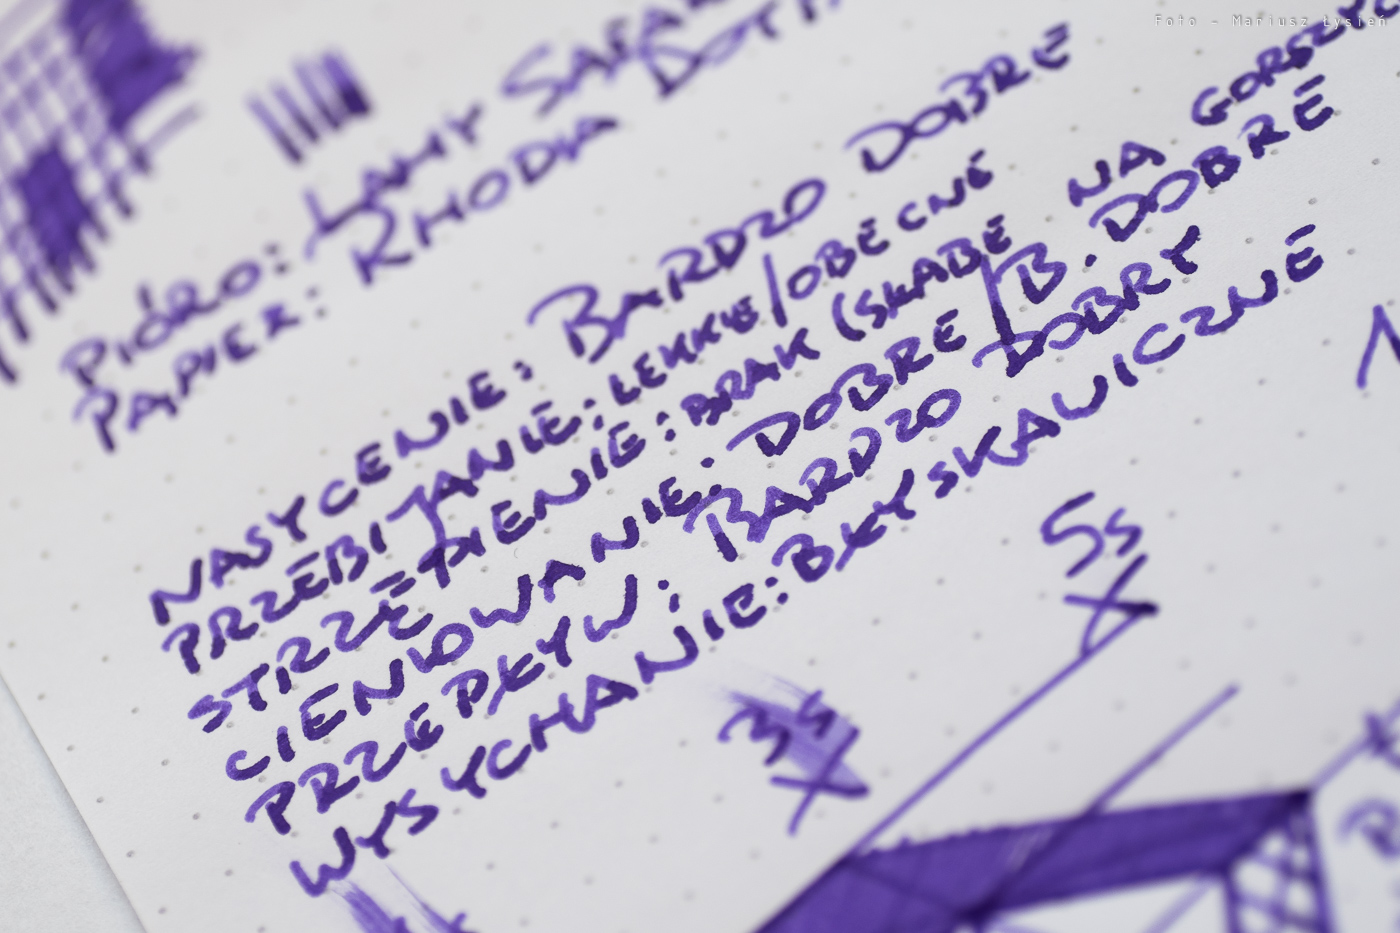 Foto - Mariusz Łysień
PIÓRO: LAMY SAFARI
PAPIER: RHODIA DOT
NASYCENIE: BARDZO DOBRE
PRZEBIJANIE: LEKKIE/OBECNE
STRZĘPIENIE: BRAK (SŁABE NA GORSZYC
CIENIOWANIE: DOBRE/B. DOBRE
PRZEPŁYW: BARDZO DOBRY
WYSYCHANIE: BŁYSKAWICZNE
5s
3s